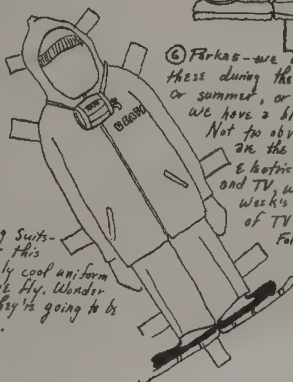 ⑥ Parkas - we
these during the
or summer, or
we have a b
Not too obv
are the
Electric
and TV, w
Week's
of TV
For
g Suits -
this
ly cool uniform
e fly. Wonder
hey're going to be